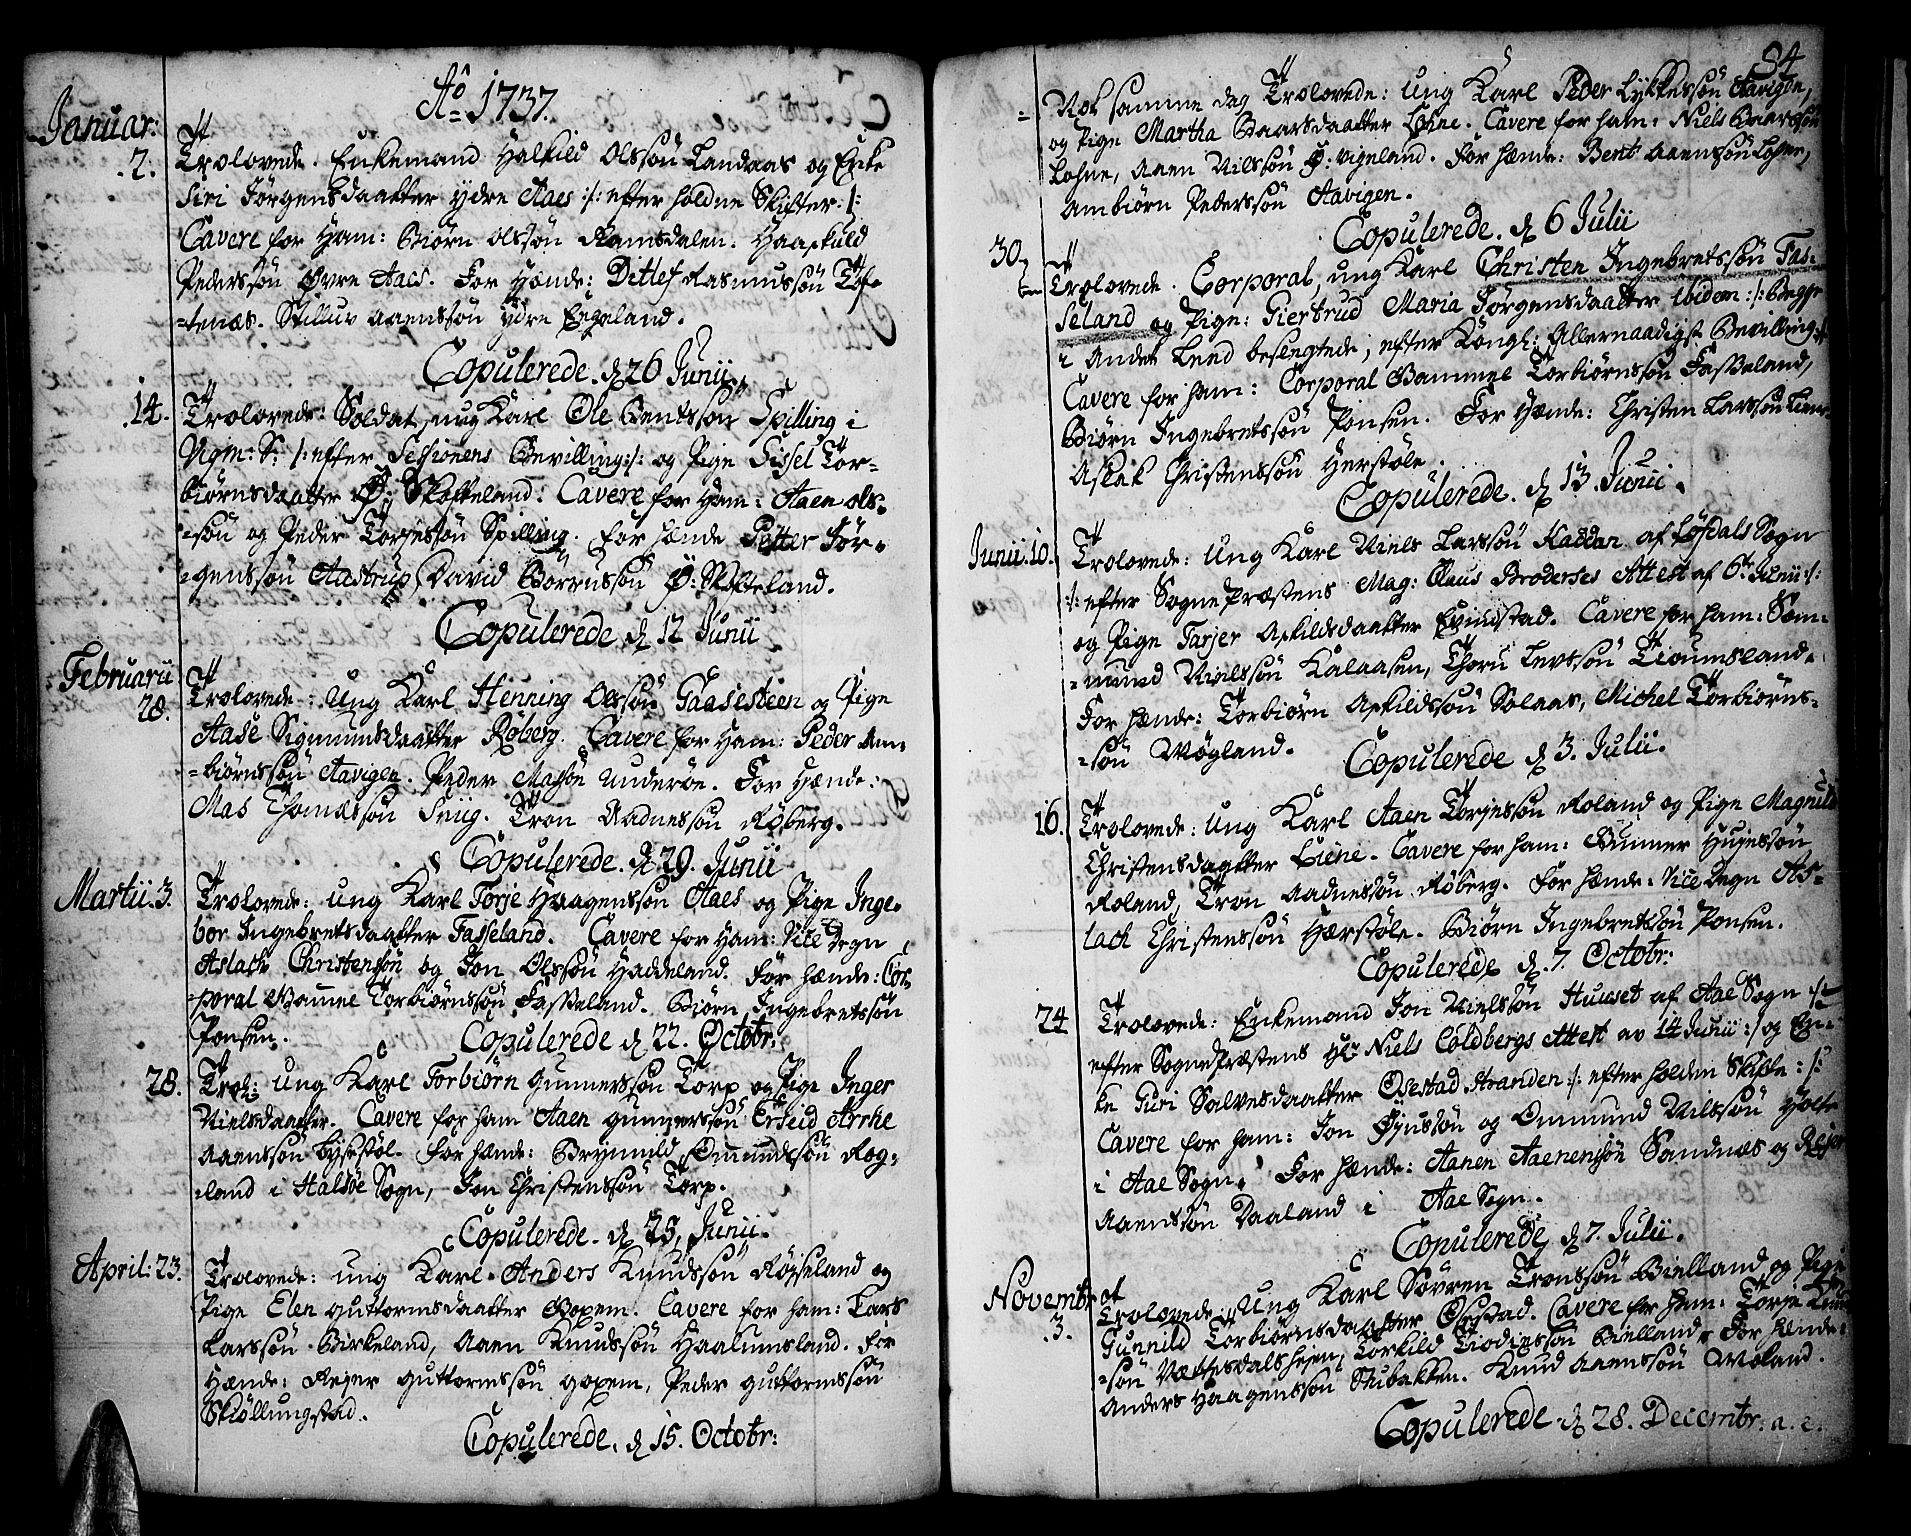 Ao 1737.
Januar:
.2.
Trolovede. Enkemand Halkild Olssøn Landaas og Enke
Siri Jørgensdaatter ydre Aaes :/: efter holdne Skifter :/:
Cavere for Ham: Biørn Olssøn Ramsdalen. Haaskuld
Pederssøn Øvre Aaes. For Hænde: Ditlef Rasmussøn Tof-
-tenæs. Aaenssøn ydre Egeland.
Copulerede. d 26 Junii
.14.
Trolovede: Soldat, ung Karl Ole Bentssøn Spilling i
Vigm: S: /: efter Sessionens Bevilling :/: og Pige Sissel Tor-
biørnsdaatter Ø: Skofteland: Cavere for Ham: Aaen Ols-
-søn og Peder Torjessøn Spilling. for hænde Petter Jør-
-genssøn Aastrup, David Ø: Skofteland.
Copulerede d 12 Junii
Februarii
28.
Trolovede: Ung Karl Henning Olssøn Gaasesteen og Pige
Aase Sigmundsdaatter Røberg. Cavere for Ham: Peder Am-
-biørnssøn Aavigen. Peder Underøe. For Hænde:
Mas Thomæssøn Snig. Tron Aadnessøn Røberg.
Copulerede. d 29. Junii
Martii. 3.
Trolovede: ung Karl Torje Haagenssøn Aaes og Pige Inge-
bor Ingebretsdaatter Fasseland. Cavere for Ham: Vice Degn
Aslach Christenssøn og Jon Olssøn Haddeland. For hænde: Cor-
-poral Gamel Torbiørnssøn Fasseland. Biørn Ingebretssøn
Ponsen.
Copulerede d 22. Octobr:
28.
Trol: Ung Karl Torbiørn Gunnerssøn Torp og Pige Inger
Nielsdaatter. Cavere for ham Aaen Gunnerssøn Erseid
Aaenssøn Lysestøl. For hænde: Brynnild Omundssøn Rog-
-land i Halsøe Sogn, Jon Christenssøn Torp.
Copulerede. d 25, Junii.
April: 23.
Trolovede: ung Karl Anders Knudssøn Røjseland og
Pige Elen Guttormsdaatter Goxem. Cavere for ham: Lars
Larssøn Birkeland, Aaen Knudssøn Haalumsland. For
Hænde: Rejer Guttormssøn Goxem, Peder Guttormssøn
Skiøllungstad.
Copulerede. d 15. Octobr:
84
Nok samme dag Trolovede: Ung Karl Peder Lykkessøn Aavigen,
og Pige Martha Baarsdaatter Lohne. Cavere for ham: Niels Baarssøn
Lohne, Aaen Nilssøn Ø: Vigeland. For hænde: Bent Aaenssøn Lohne,
Ambiørn Pederssøn Aavigen.
Copulerede. d 6 Julii
30
Trolovede. Corporal, ung Karl Christen Ingebretssøn Fas-
seland og Pige: Giertrud Maria Jørgensdaatter ibidem :/: Begge
i Andet Leed beslegtede, efter Kongl: Allernaadigst Bevilling :/:
Cavere for ham: Corporal Gammel Torbiørnssøn Fasseland,
Biørn Ingebretssøn Ponsen. For Hænde: Christen Larssøn Liene
Aslak Christenssøn Herstøle.
Copulerede. d 13. Junii.
Junii. 10.
Trolovede: Ung Karl Niels Larssøn Raddan af Løfdals Sogn
:/: efter Sogne Præstens Mag: Claus Broderses Attest af 6te Junii :/:
og Pige Tarjer Askildsdaatter Evindstad. Cavere for ham: Som-
-mund Nielssøn Kalaasen, Levssøn
For hænde: Torbiørn Askildssøn Solaas, Michel Torbiørns-
-søn Møgland.
Copulerede d 3. Julii.
16.
Trolovede: Ung Karl Aaen Torjessøn Roland og Pige Magnild
Christensdaatter Liene. Cavere for ham: Gunner
Roland, Tron Aadnessøn Røberg. For hænde: Vice Degn As-
lach Christenssøn Hærstøle. Biørn Ingebretssøn Ponsen.
Copulerede d. 7. Octobr:
24
Trolovede: Enkemand Jon Nielssøn Huuset af Aae Sogn :/:
efter Sogne Præstens Hr Niels Coldbergs Attest av 14 Junii :/: og En-
ke Guri Salvesdaatter Osestad Stranden :/: efter holden Skifte :/:
Cavere for ham: Jon og Ommund Nilssøn Holte
i Aae Sogn. For hænde: Aanen Aanenssøn Sandnæs og Rejer
Aaenssøn Daaland i Aae Sogn.
Copulerede d 7. Julii.
Novembr
.3.
Trolovede: Ung Karl Søvren Tronssøn Bielland og Pige
Gunnild Torbiørnsdaatter Osestad. Cavere for ham: Torje Knud-
-søn Torkild Bielland. For hænde:
Anders Haagenssøn Stubakken. Knud Aaenssøn Moland.
Copulerede d 28. Decembr: a. c.